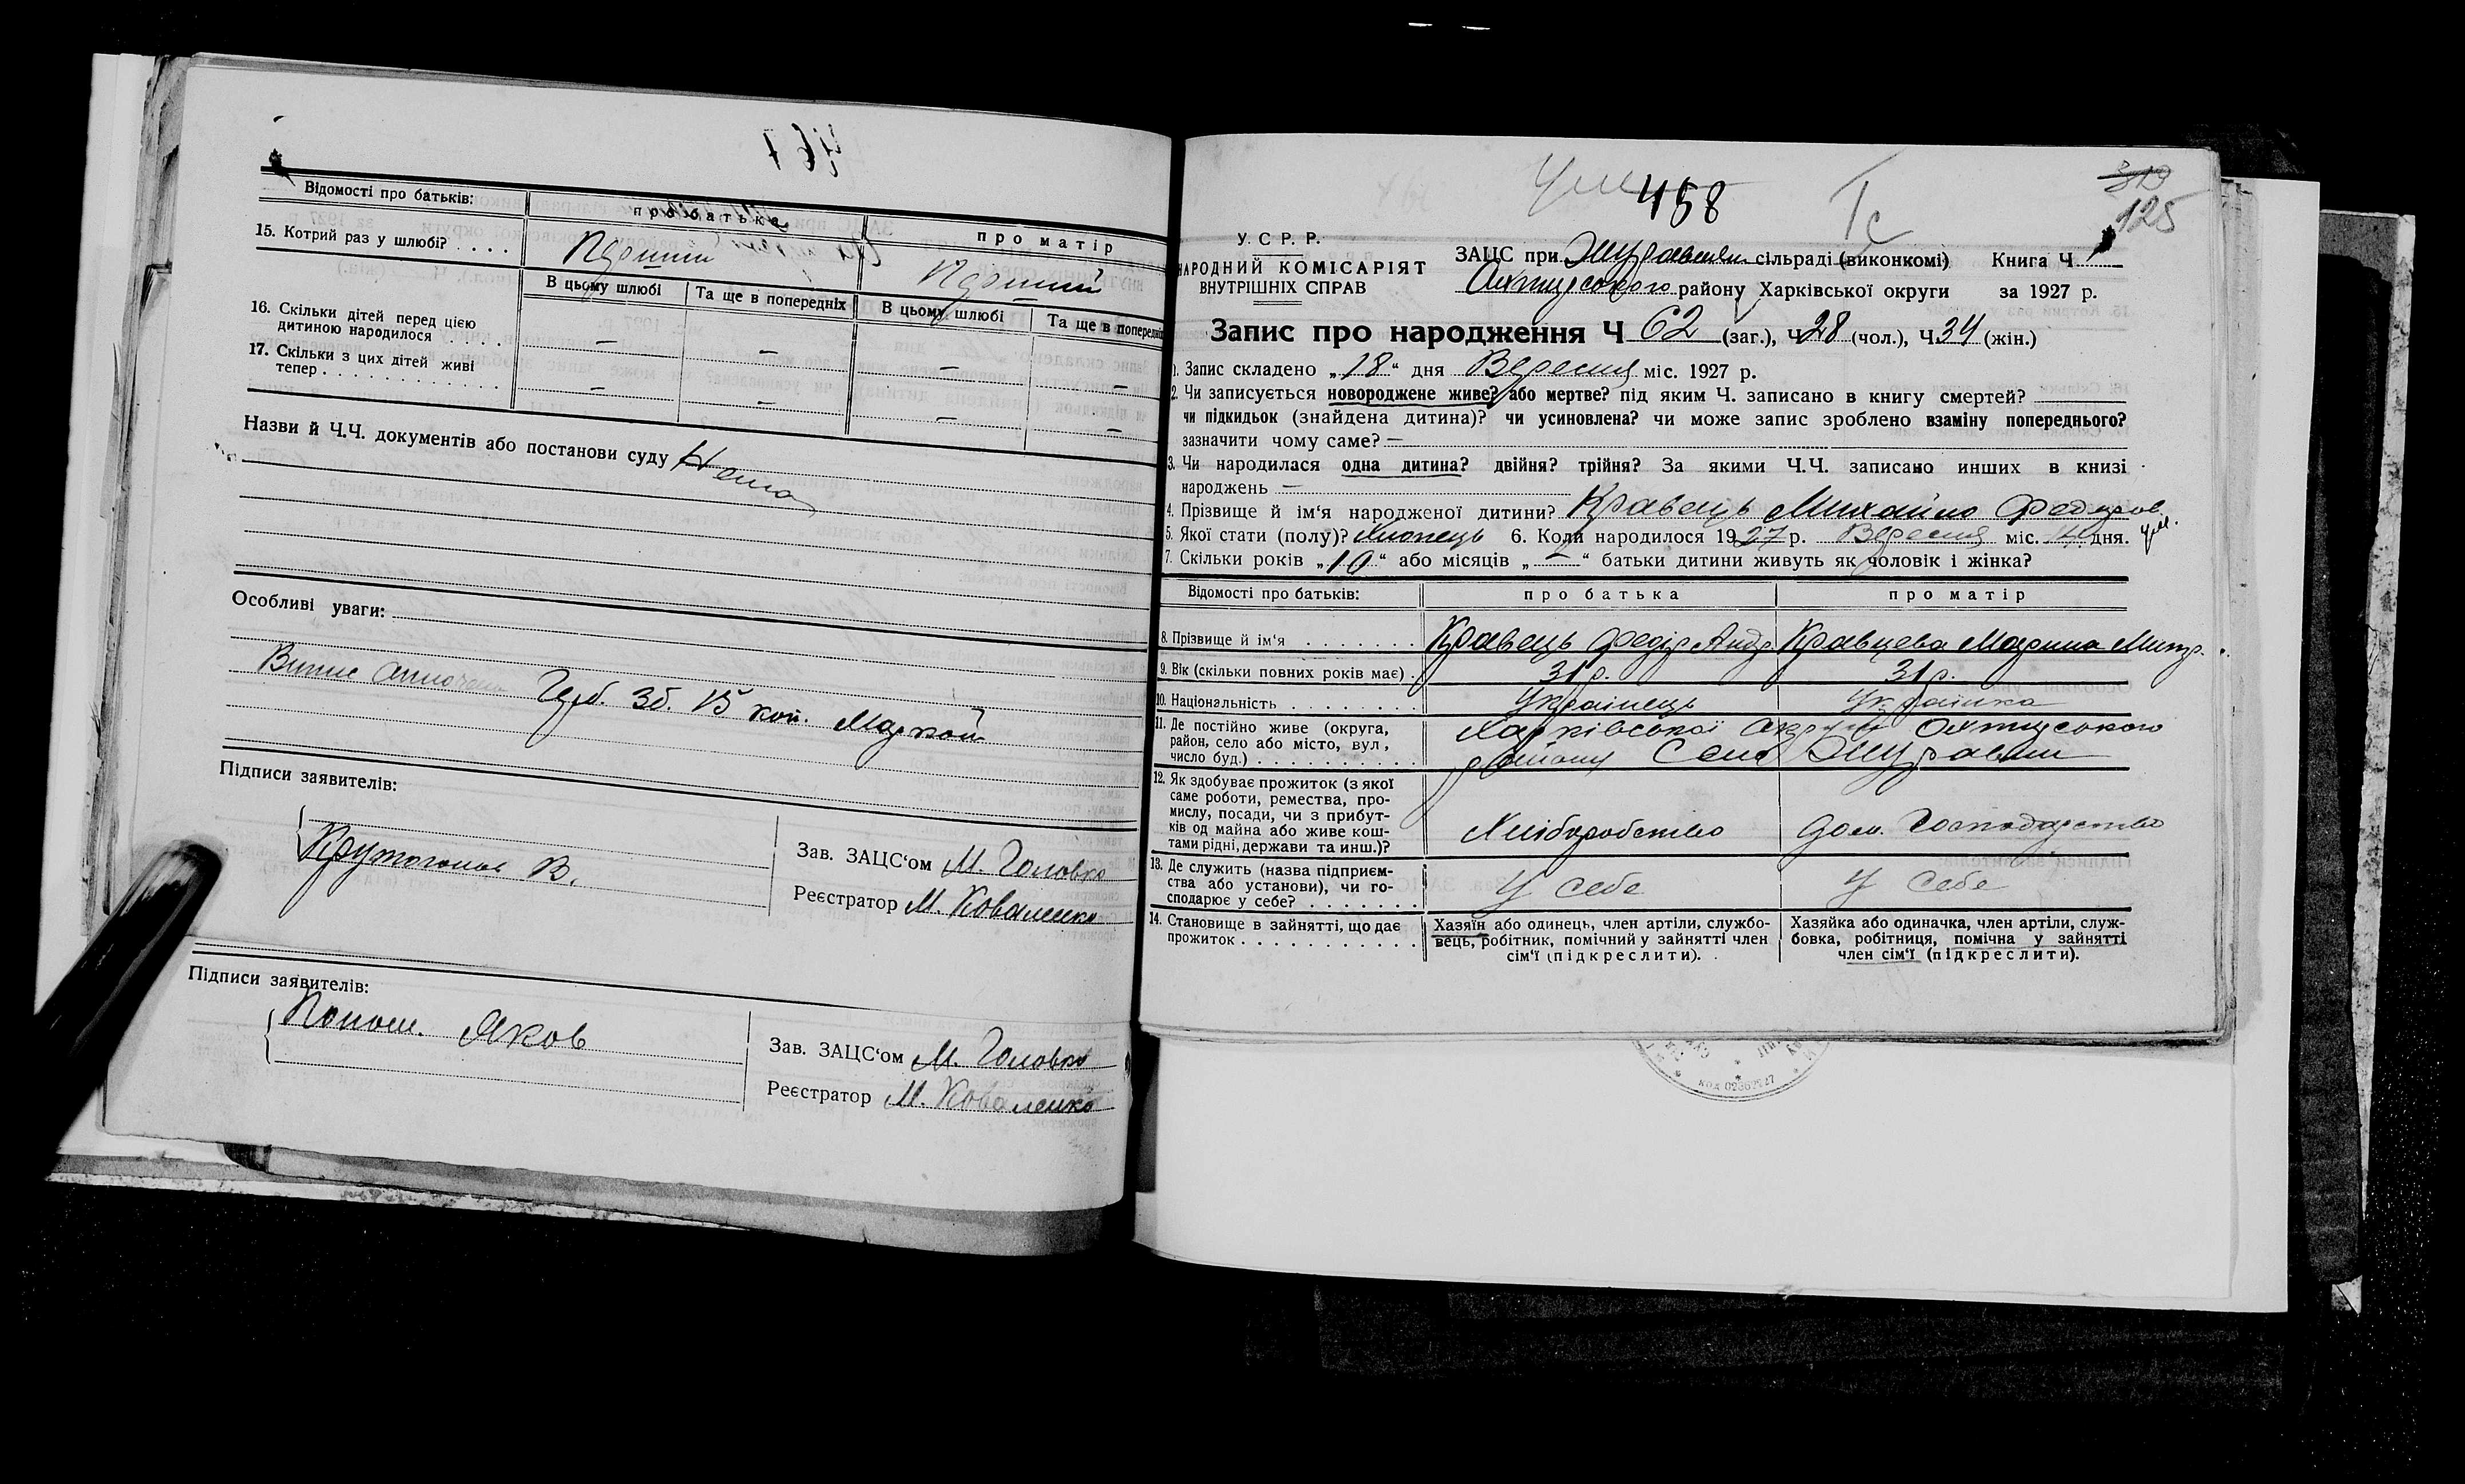 Відомості про батьків:
про батька
про матір
15. Котрий раз у шлюбі? . . . .
Перший
Перший
В цьому шлюбі
Та ще в попередніх
В цьому шлюбі
Та ще в попередніх
16. Скільки дітей перед цією
дитиною народилося . . . .
— — — —
17. Скільки з цих дітей живі
тепер . . . . . . . . . . . . .
— — — —
Назви й Ч.Ч. документів або постанови суду Нема
Особливі уваги:
Герб. Зб. 15 коп. Маркой
Підписи заявителів:
В.
Зав. ЗАЦС‘ом М. Головко
Реєстратор М. Коваленко
Підписи заявителів:
Яков
Зав. ЗАЦС‘ом М. Головко
Реєстратор М. Коваленко
458
Тс
319
125
У. С. Р. Р.
НАРОДНИЙ КОМІСАРІЯТ
ВНУТРІШНІХ СПРАВ
ЗАЦС при Журавлем сільраді (виконкомі) Книга Ч 1
району Харківської округи за 1927 р.
Запис про народження Ч 62 (заг.), Ч 28 (чол.), Ч 34 (жін.)
1. Запис складено „18“ дня Вересня міс. 1927 р.
2. Чи записується новороджене живе? або мертве? під яким Ч. записано в книгу смертей?
чи підкидьок (знайдена дитина)? чи усиновлена? чи може запис зроблено взаміну попереднього?
зазначити чому саме? —
3. Чи народилася одна дитина? двійня? трійня? За якими Ч.Ч. записано инших в книзі
народжень —
4. Прізвище й ім‘я народженої дитини? Кравець Михайло Федоров
5. Якої стати (полу)? Хлопець 6. Коли народилося 1927 р. Вересня міс. 14 дня.
7. Скільки років „10“ або місяців „—“ батьки дитини живуть як чоловік і жінка?
Відомості про батьків:
про батька
про матір
8. Прізвище й ім‘я . . . . . . .
Кравець Федір Андр.
Кравцева Марина Митр.
9. Вік (скільки повних років має) .
31 р.
31 р.
10. Національність . . . . . . . .
Українець
Українка
11. Де постійно живе (округа,
район, село або місто, вул,
число буд.) . . . . . . . . . .
Харківської округи
району Село Журавлі
12. Як здобуває прожиток (з якої
саме роботи, ремества, про-
мислу, посади, чи з прибут-
ків од майна або живе кош-
тами рідні, держави та инш.)?
Хліборобство
Дом. Господарство
13. Де служить (назва підприєм-
ства або установи), чи го-
сподарює у себе? . . . . . . .
У себе
У себе
14. Становище в зайнятті, що дає
прожиток . . . . . . . . . . .
Хазяїн або одинець, член артіли, службо-
вець, робітник, помічний у зайнятті член
сім‘ї (підкреслити).
Хазяйка або одиначка, член артіли, служ-
бовка, робітниця, помічна у зайнятті
член сім‘ї (підкреслити).